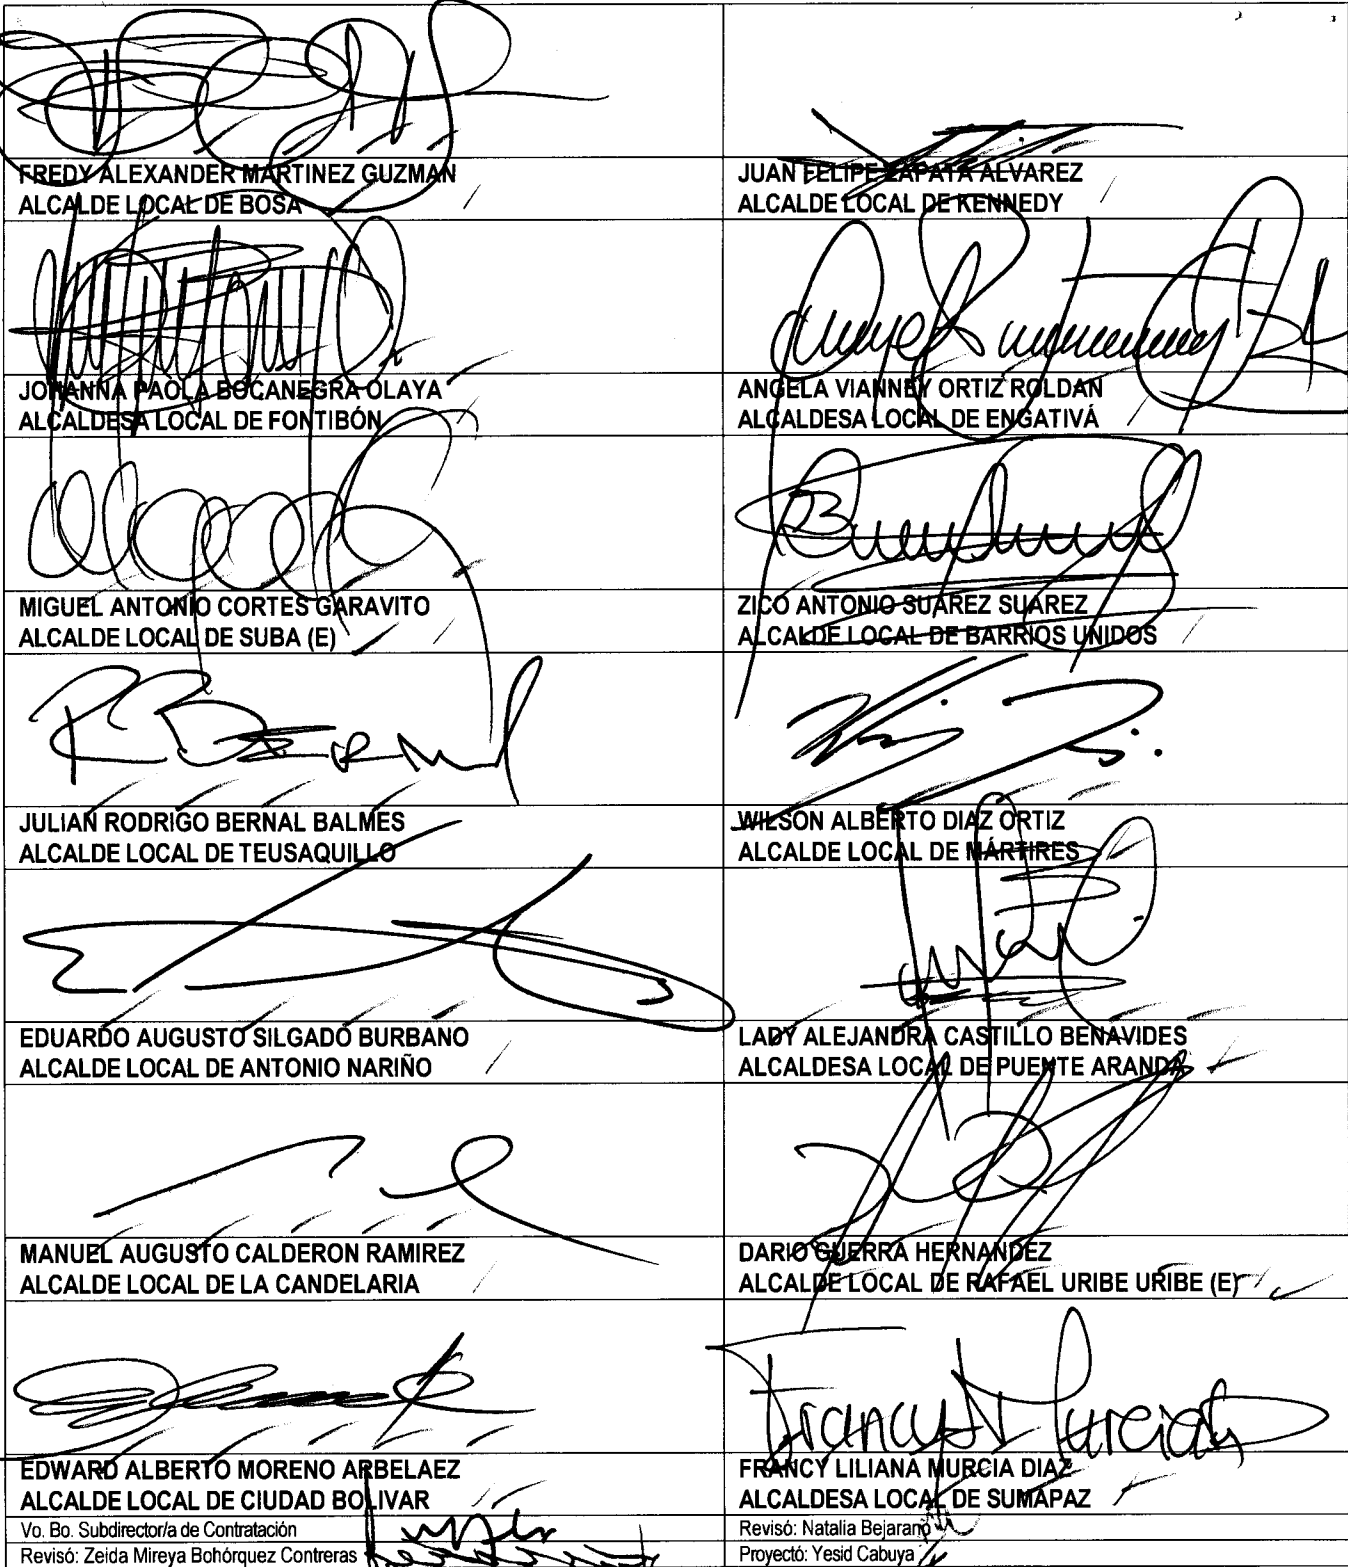 FREDY ALEXANDER MARTINEZ GUZMAN
ALCALDE LOCAL DE BOSA
JUAN FELIPE ZAPATA ALVAREZ
ALCALDE LOCAL DE KENNEDY
JOHANNA PAOLA BOCANEGRA OLAYA
ALCALDESA LOCAL DE FONTIBÓN
ANGELA VIANNEY ORTIZ ROLDAN
ALCALDESA LOCAL DE ENGATIVÁ
MIGUEL ANTONIO CORTES GARAVITO
ALCALDE LOCAL DE SUBA (E)
ZICO ANTONIO SUAREZ SUAREZ
ALCALDE LOCAL DE BARRIOS UNIDOS
JULIAN RODRIGO BERNAL BALMES
ALCALDE LOCAL DE TEUSAQUILLO
WILSON ALBERTO DIAZ ORTIZ
ALCALDE LOCAL DE MÁRTIRES
EDUARDO AUGUSTO SILGADO BURBANO
ALCALDE LOCAL DE ANTONIO NARIÑO
LADY ALEJANDRA CASTILLO BENAVIDES
ALCALDESA LOCAL DE PUENTE ARANDA
MANUEL AUGUSTO CALDERON RAMIREZ
ALCALDE LOCAL DE LA CANDELARIA
DARIO GUERRA HERNANDEZ
ALCALDE LOCAL DE RAFAEL URIBE URIBE (E)
Francy Murcia
EDWARD ALBERTO MORENO ARBELAEZ
ALCALDE LOCAL DE CIUDAD BOLIVAR
FRANCY LILIANA MURCIA DIAZ
ALCALDESA LOCAL DE SUMAPAZ
Vo. Bo. Subdirector/a de Contratación
Revisó: Natalia Bejarano
Revisó: Zeida Mireya Bohórquez Contreras
Proyectó: Yesid Cabuya